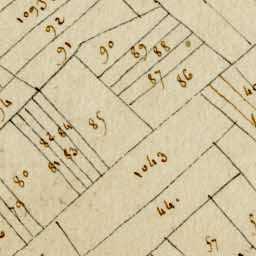 1093
92
91
90
89
88
87
86
85
84
82
83
81
80
1043
44.
57